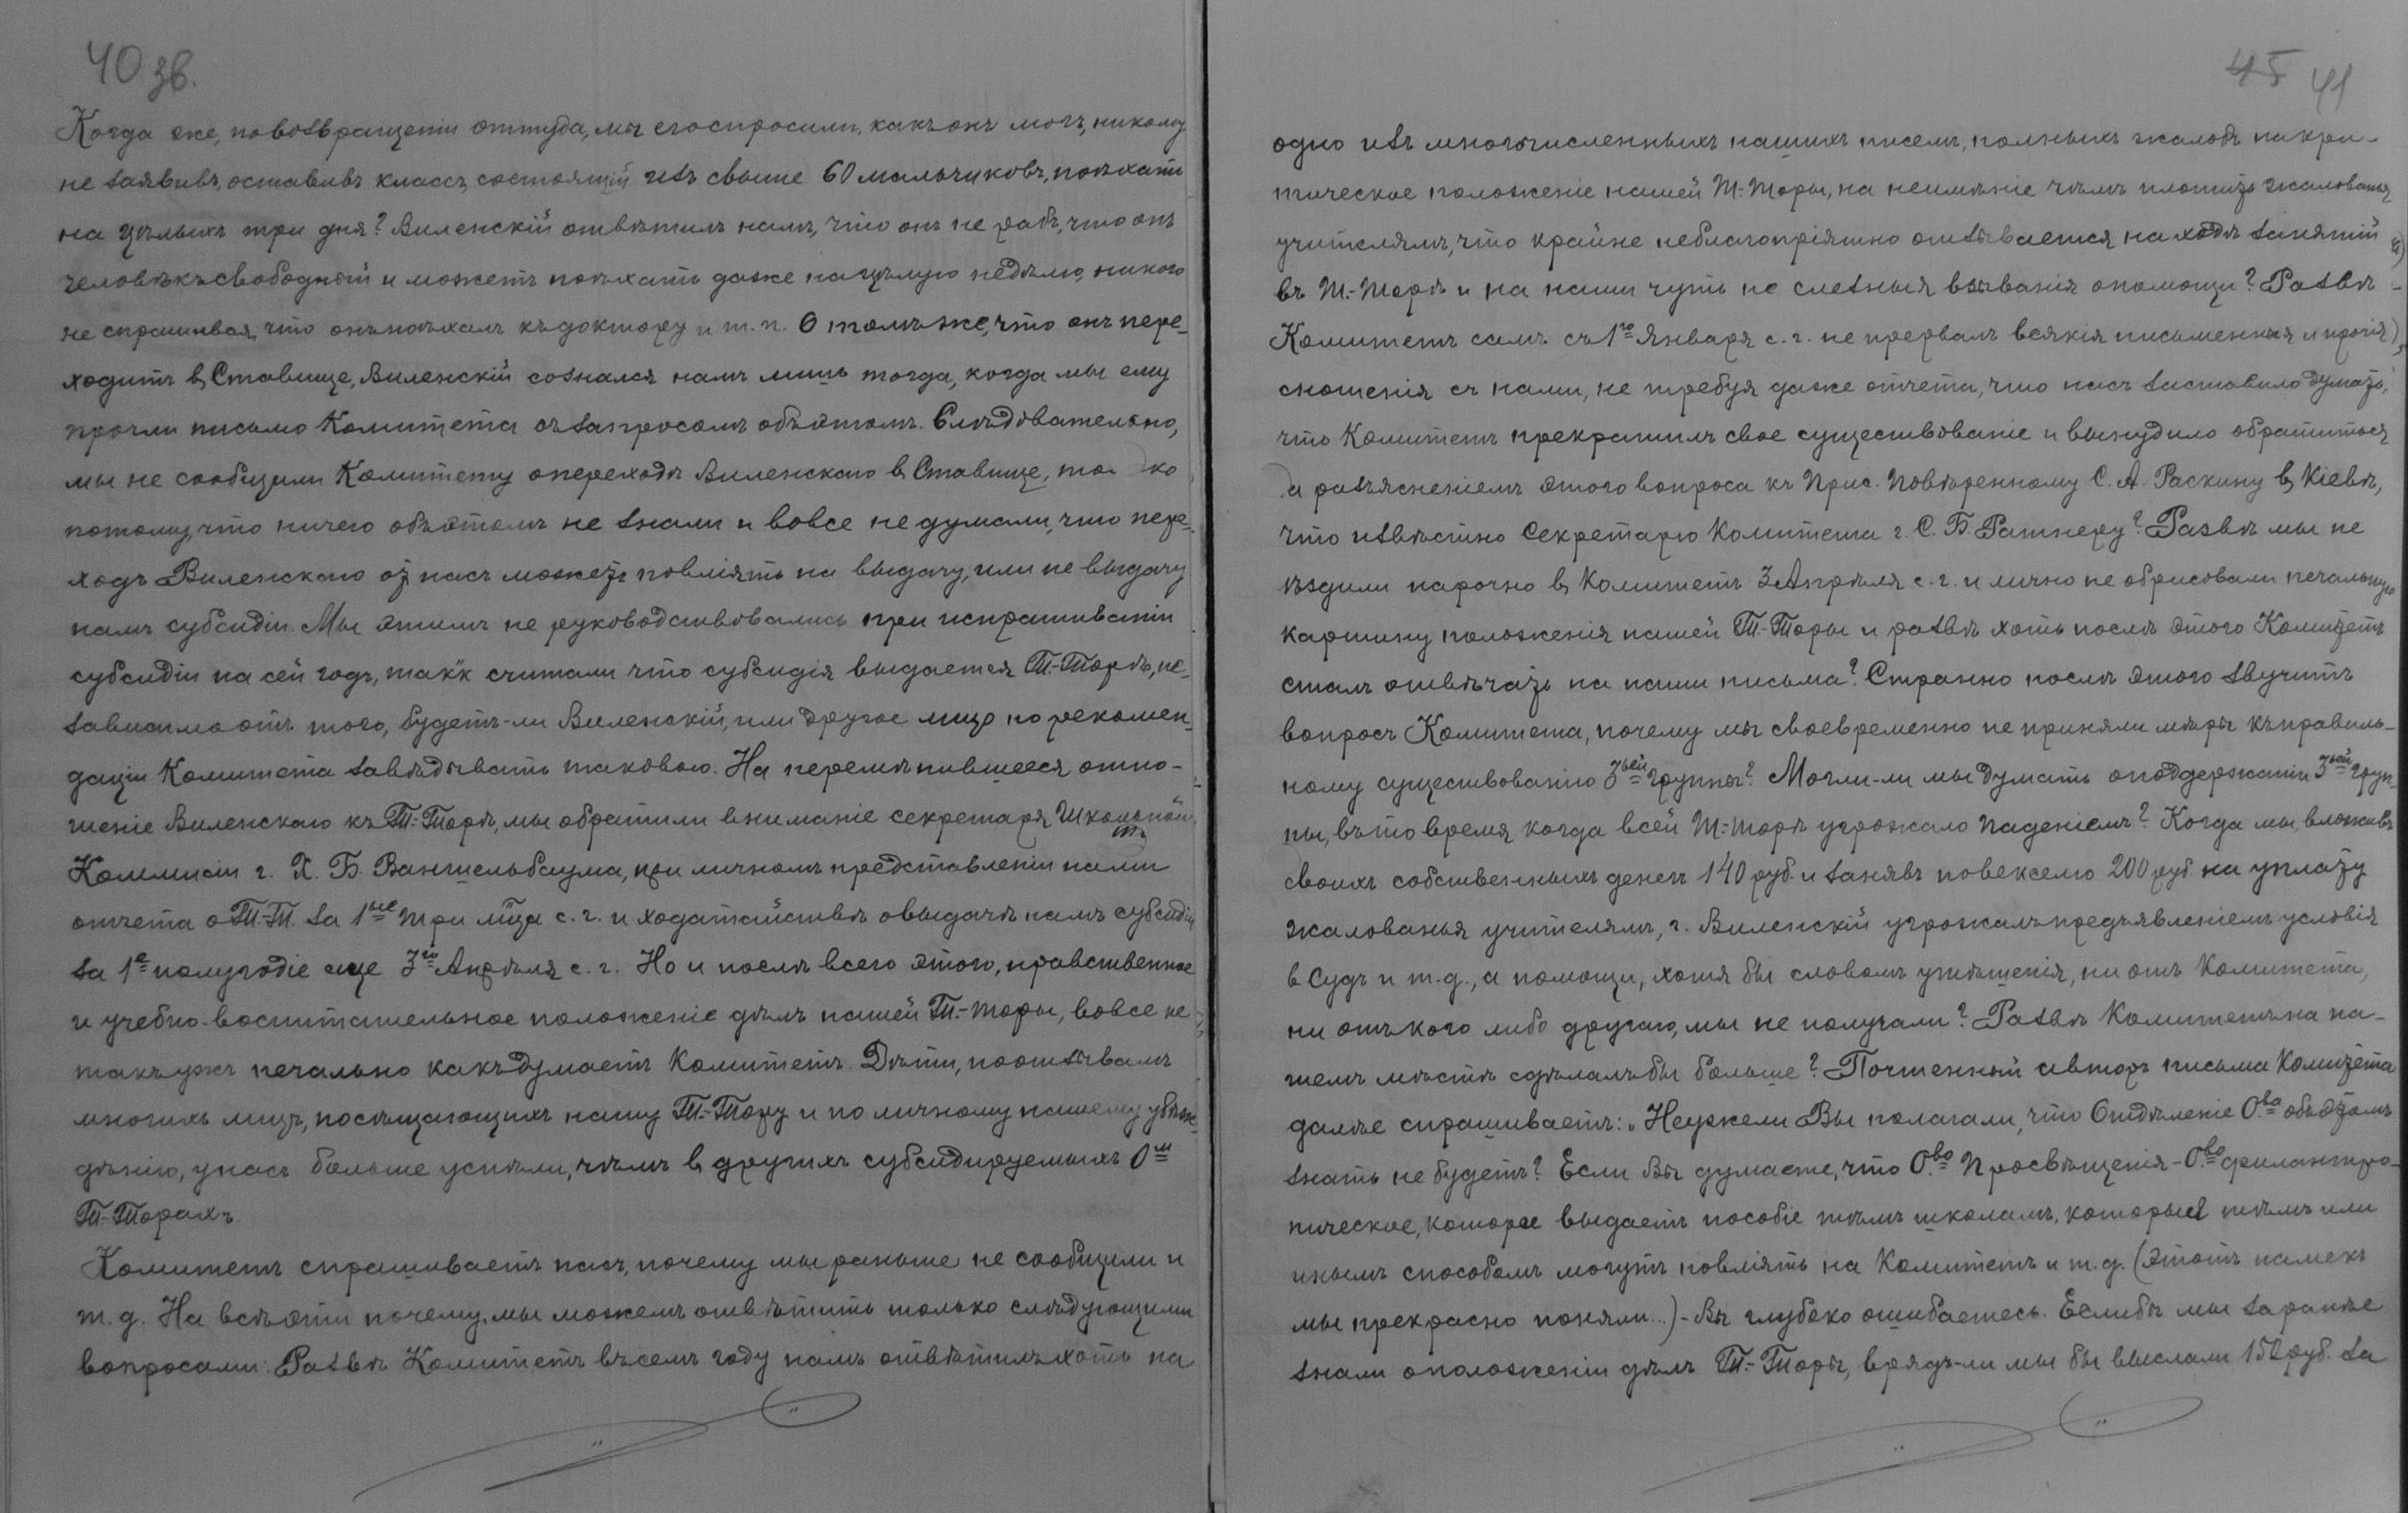 40 зв.
Когда же, по возвращеніи оттуда, мы его спросили, какъ онъ могъ, никому
не заявивъ, оставивъ классъ, состоящій изъ свыше 60 мальчиковъ, поѣхать
на цѣлыхъ три дня? Виленскій отвѣтилъ намъ, что онъ не рабъ, что онъ
человѣкъ свободный и можетъ поѣхать даже на цѣлую недѣлю, никого
не спрашивая, что онъ поѣхалъ къ доктору и т. п. О томъ же, что онъ пере-
ходитъ в Ставище, Виленскій сознался намъ лишь тогда, когда мы ему
прочли письмо Комитета съ запросомъ объ этомъ. Слѣдовательно,
мы не сообщили Комитету о переходѣ Виленскаго в Ставище, то ко
потому, что ничего объ этомъ не знали и вовсе не думали, что пере-
ходъ Виленскаго от насъ можетъ повліять на выдачу, или не выдачу
намъ субсидіи. Мы этимъ не руководствовались при испрашиваніи
субсидіи на сей годъ, так"к считали что субсидія выдается Т.-Торѣ, не-
зависимо отъ того, будетъ-ли Виленскій, или другое лицо по рекомен-
даціи Комитета завѣдывать таковою. На перемѣнившееся отно-
шеніе Виленскаго къ Т.-Торѣ, мы обратили вниманіе секретаря Школьной
Коммисіи г. Х. Б. Вангисельбаума, при личномъ представленіи нами
отчета о Т.-Т. за 1ые три м-ца с. г. и ходатайствѣ о выдачѣ намъ субсидіи
за 1е полугодіе еще 3го Апрѣля с. г. Но и послѣ всего этого, нравственное
и учебно-воспитательное положеніе дѣлъ нашей Т.-Торы, вовсе не
такъ ужъ печально какъ думаетъ Комитетъ. Дѣти, по отзывамъ
многихъ лицъ, посѣщающихъ нашу Т.-Тору и по личному нашему убѣж-
дѣнію, у насъ больше успѣли, чѣмъ в другихъ субсидируемыхъ О-м
Т-Торахъ.
Комитетъ спрашиваетъ насъ, почему мы раньше не сообщили и
т. д. На всѣ эти почему, мы можемъ отвѣтить только слѣдующими
вопросами: Развѣ Комитетъ въ семъ году намъ отвѣтилъ хоть на
45 41
одно изъ многочисленныхъ нашихъ писемъ, полныхъ жалобъ на кри-
тическое положеніе нашей Т.-Торы, на неимѣніе чѣмъ платить жалованья
учителямъ, что крайне неблагопріятно отзывается на ходѣ занятій
въ Т.-Торѣ и на наши чуть не слезныя взыванія о помощи? Развѣ
Комитетъ самъ съ 1го Января с. г. не прервалъ всякія письменныя и прочія
сношенія съ нами, не требуя даже отчета, что насъ заставило думать,
что Комитетъ прекратилъ свое существованіе и вынудило обратиться
за разъясненіемъ этого вопроса къ Прис. Повѣренному С. А. Раскину в Кіевѣ,
что извѣстно Секретарю Комитета г. С. Б. Ратнеру? Развѣ мы не
ѣздили нарочно в Комитетъ 3 Апрѣля с. г. и лично не обрисовали печальную
картину положенія нашей Т.-Торы и развѣ хоть послѣ этого Комитетъ
сталъ отвѣчать на наши письма? Странно послѣ этого звучитъ
вопросъ Комитета, почему мы своевременно не приняли мѣры къ правиль-
ному существованію 3ьей группы? Могли-ли мы думать о поддержаніи 3ьей груп-
пы, въ то время когда всей Т.-Торѣ угрожало паденіемъ? Когда мы, вложивъ
своихъ собственныхъ денегъ 140 руб. и занявъ по векселю 200 руб. на уплату
жалованья учителямъ, г. Виленскій угрожалъ предъявленіемъ условія
в Судъ и т. д., а помощи, хотя бы словомъ утѣшенія, ни отъ Комитета,
ни отъ кого либо другаго, мы не получали? Развѣ Комитетъ на на-
шемъ мѣстѣ сдѣлалъ бы больше? Почтенный авторъ письма Комитета
далѣе спрашиваетъ: „Неужели Вы полагали, что Отдѣленіе О.ва объ этомъ
знать не будетъ? Если Вы думаете, что О.во Просвѣщенія - О.во филантро-
пическое, которое выдаетъ пособіе тѣмъ школамъ, которые тѣмъ или
инымъ способомъ могутъ повліять на Комитетъ и т. д. (Этотъ намекъ
мы прекрасно поняли...) - Вы глубоко ошибаетесь. Если бы мы заранѣе
знали о положеніи дѣлъ Т.-Торы, врядъ-ли мы бы выслали 150 руб. за